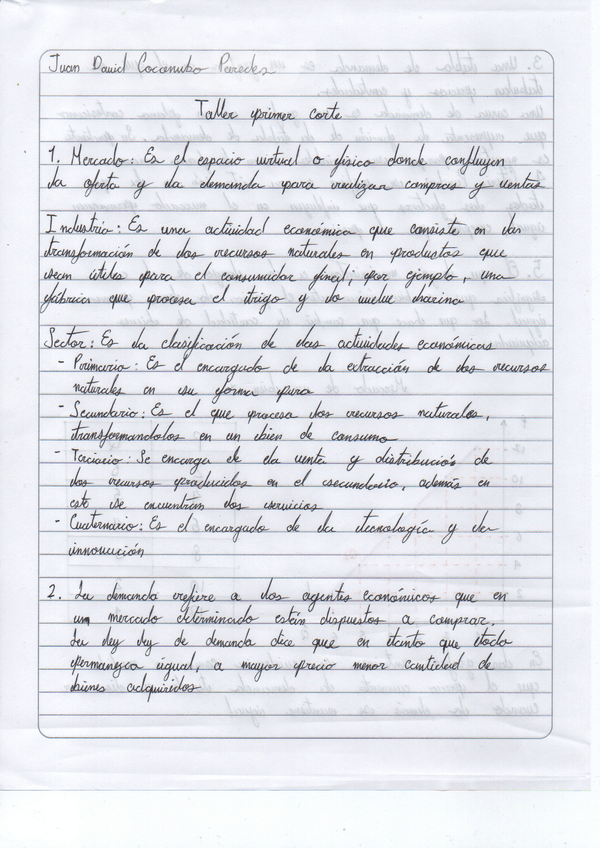 Juan David Cocanubo Paredes
Taller primer corte
1. Mercado: Es el espacio virtual o físico donde confluyen
la oferta y la demanda para realizar compras y ventas
Industria: Es una actividad económica que consiste en la
transformación de los recursos naturales en productos que
sean útiles para el consumidor final; por ejemplo, una
fábrica que procesa el trigo y lo vuelve harina
Sector: Es la clasificación de las actividades económicas
- Primario: Es el encargado de la extracción de los recursos
naturales en su forma pura
- Secundario: Es el que procesa los recursos naturales,
transformandolos en un bien de consumo
- Terciario: Se encarga de la venta y distribución de
los recursos producidos en el secundario, además en
este se encuentran los servicios
- Cuaternario: Es el encargado de la tecnología y la
innovación
2. La demanda refiere a los agentes económicos que en
un mercado determinado están dispuestos a comprar.
La ley ley de demanda dice que en tanto que todo
permanezca igual, a mayor precio menor cantidad de
bienes adquiridos